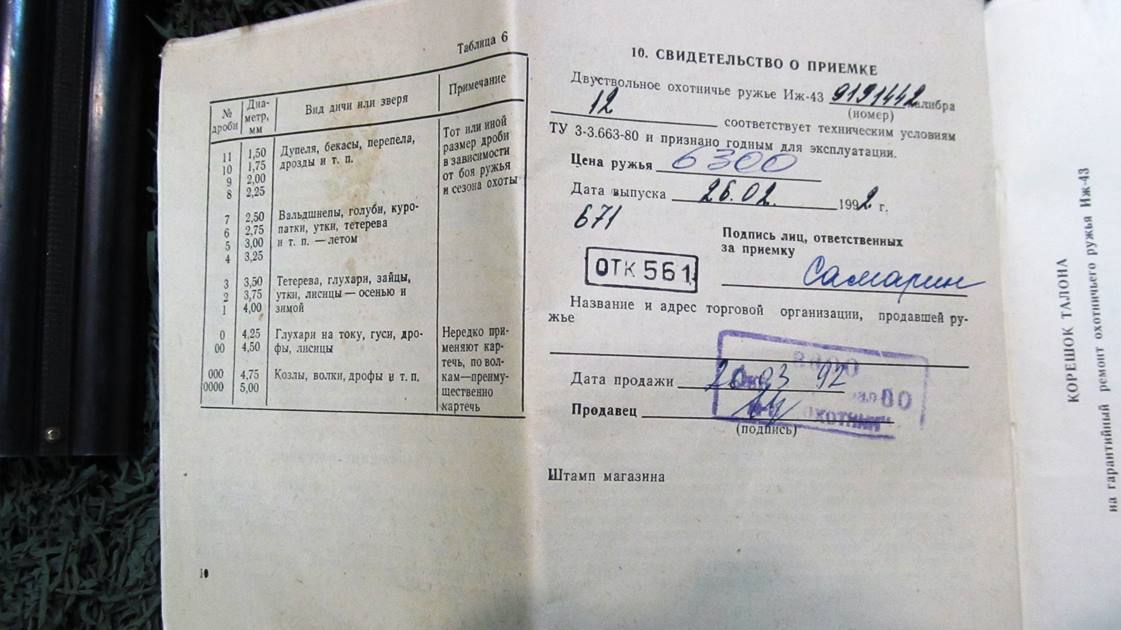 Таблица 6
№ дроби Диаметр, мм Вид дичи или зверя Примечание
11 1,50 Дупеля, бекасы, перепела, Тот или иной
10 1,75 дрозды и т. п. размер дроби
9 2,00 в зависимости
8 2,25 от боя ружья
и сезона охоты
7 2,50 Вальдшнепы, голуби, куро-
6 2,75 патки, утки, тетерева
5 3,00 и т. п. — летом
4 3,25
3 3,50 Тетерева, глухари, зайцы,
2 3,75 утки, лисицы — осенью и
1 4,00 зимой
0 4,25 Глухари на току, гуси, дро- Нередко при-
00 4,50 фы, лисицы меняют кар-
течь, по вол-
000 4,75 Козлы, волки, дрофы и т. п. кам—преиму-
0000 5,00 щественно
картечь
10
10. СВИДЕТЕЛЬСТВО О ПРИЕМКЕ
Двуствольное охотничье ружье Иж-43 9191442 калибра
(номер)
12 соответствует техническим условиям
ТУ 3-3.663-80 и признано годным для эксплуатации.
Цена ружья 6300
Дата выпуска 26.02. 1992 г.
671
Подпись лиц, ответственных
за приемку
ОТК 561
Самарин
Название и адрес торговой организации, продавшей ру-
жье
Дата продажи 20 03 92
Продавец
(подпись)
ОХОТНИК
Штамп магазина
КОРЕШОК ТАЛОНА
на гарантийный ремонт охотничьего ружья Иж-43